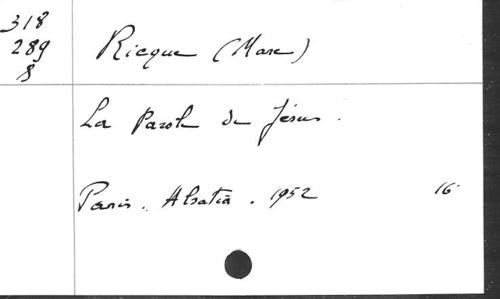 318
289
8
Ricque (Marc)
La Parole de Jésus.
Paris. Alsatia. 1952 16